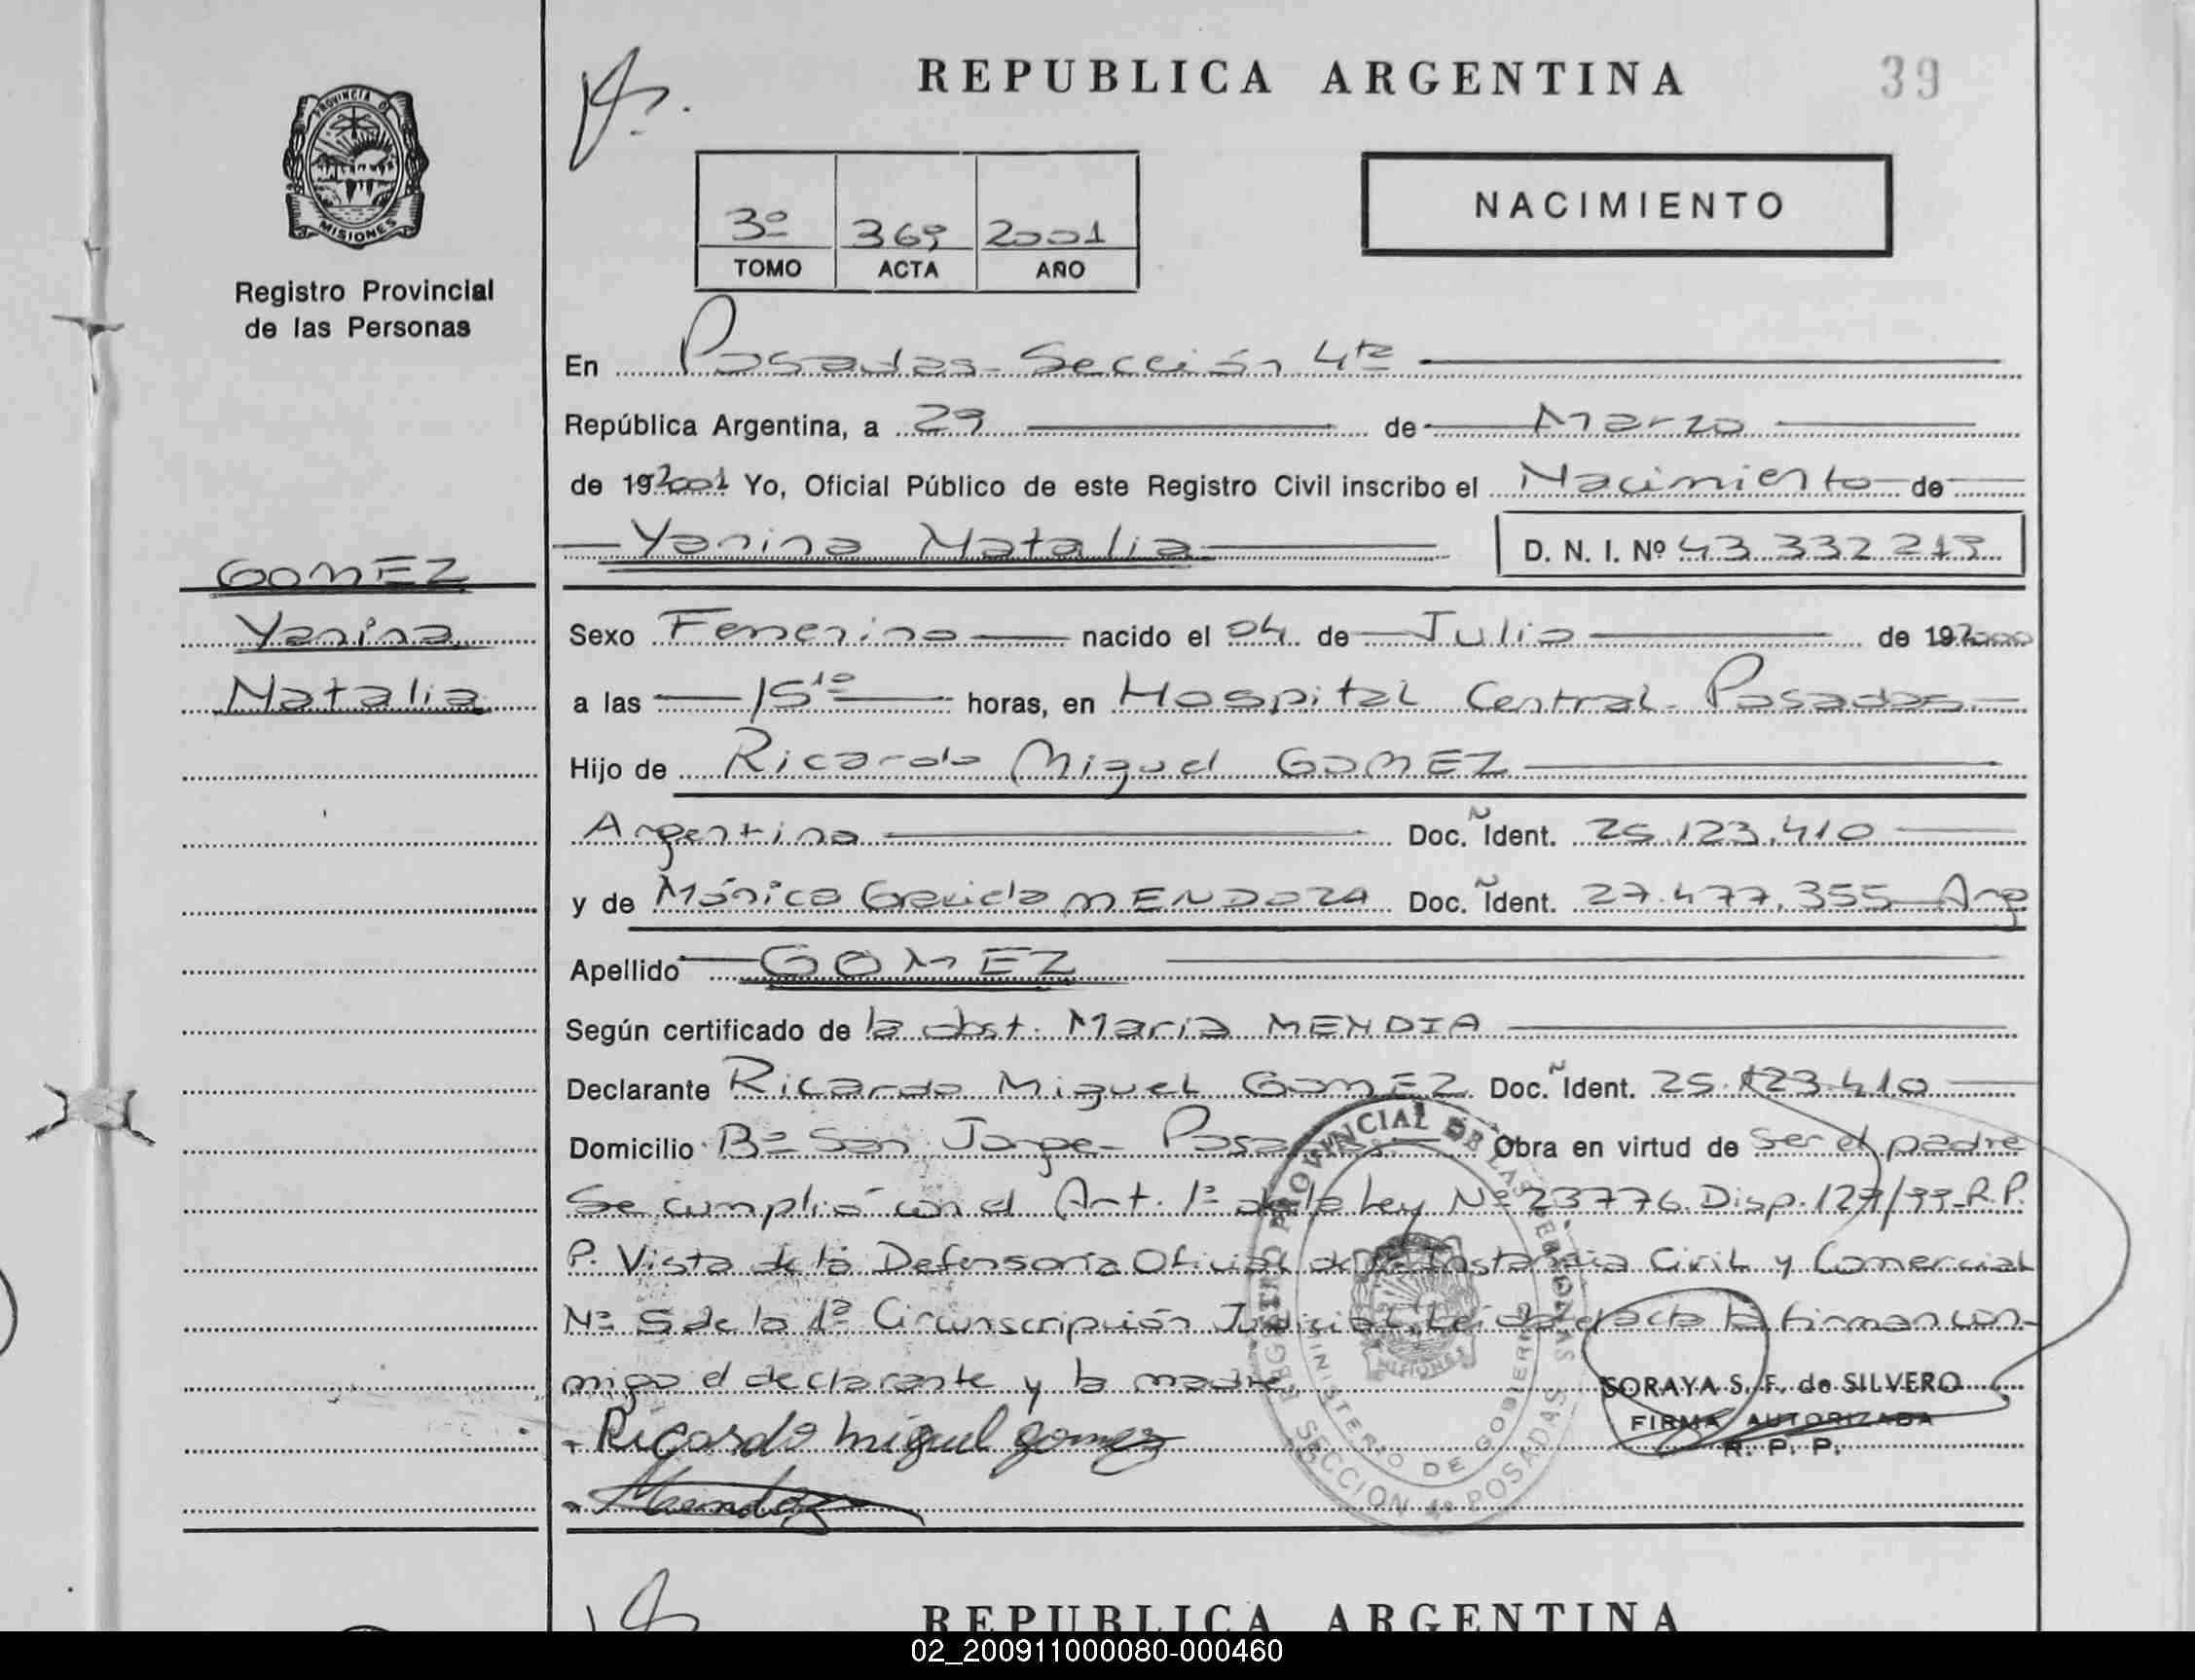 REPUBLICA ARGENTINA
39
PROVINCIA DE
MISIONES
Registro Provincial
de las Personas
3º 369 2001
TOMO ACTA AÑO
NACIMIENTO
En Posadas- Sección 4ta
República Argentina, a 29 de Marzo
de 192001 Yo, Oficial Público de este Registro Civil inscribo el Nacimiento de
Yanina Natalia D. N. I. Nº 43.332.213
GOMEZ
Yanina
Natalia
Sexo Femenino nacido el 04 de Julio de 192000
a las 15 10 horas, en Hospital Central- Posadas
Hijo de Ricardo Miguel GOMEZ
Argentino Doc. Ñ Ident. 25.123.410
y de Mónica Graciela MENDOZA Doc. Ñ Ident. 27.477.355 Arg
Apellido GOMEZ
Según certificado de la obst. María MENDIA
Declarante Ricardo Miguel GOMEZ Doc. Ñ Ident. 25.123.410
Domicilio Bº San Jorge- Posadas Obra en virtud de ser el padre
Se cumplió con el Art. 1º de la Ley Nº 23776. Disp. 127/99-R.P.
P. Vista de la Defensoría Oficial de Instancia Civil y Comercial
Nº 5 de la 1ª Circunscripción Judicial. Leída el acta la firman con-
migo el declarante y la madre
SORAYA S. F. de SILVERO
FIRMA AUTORIZADA
R. P. P.
Ricardo miguel gomez
Mendoza
REGISTRO PROVINCIAL DE LAS PERSONAS
MINISTERIO DE GOBIERNO
MISIONES
SECCION 4º POSADAS
REPUBLICA ARGENTINA
02_200911000080-000460